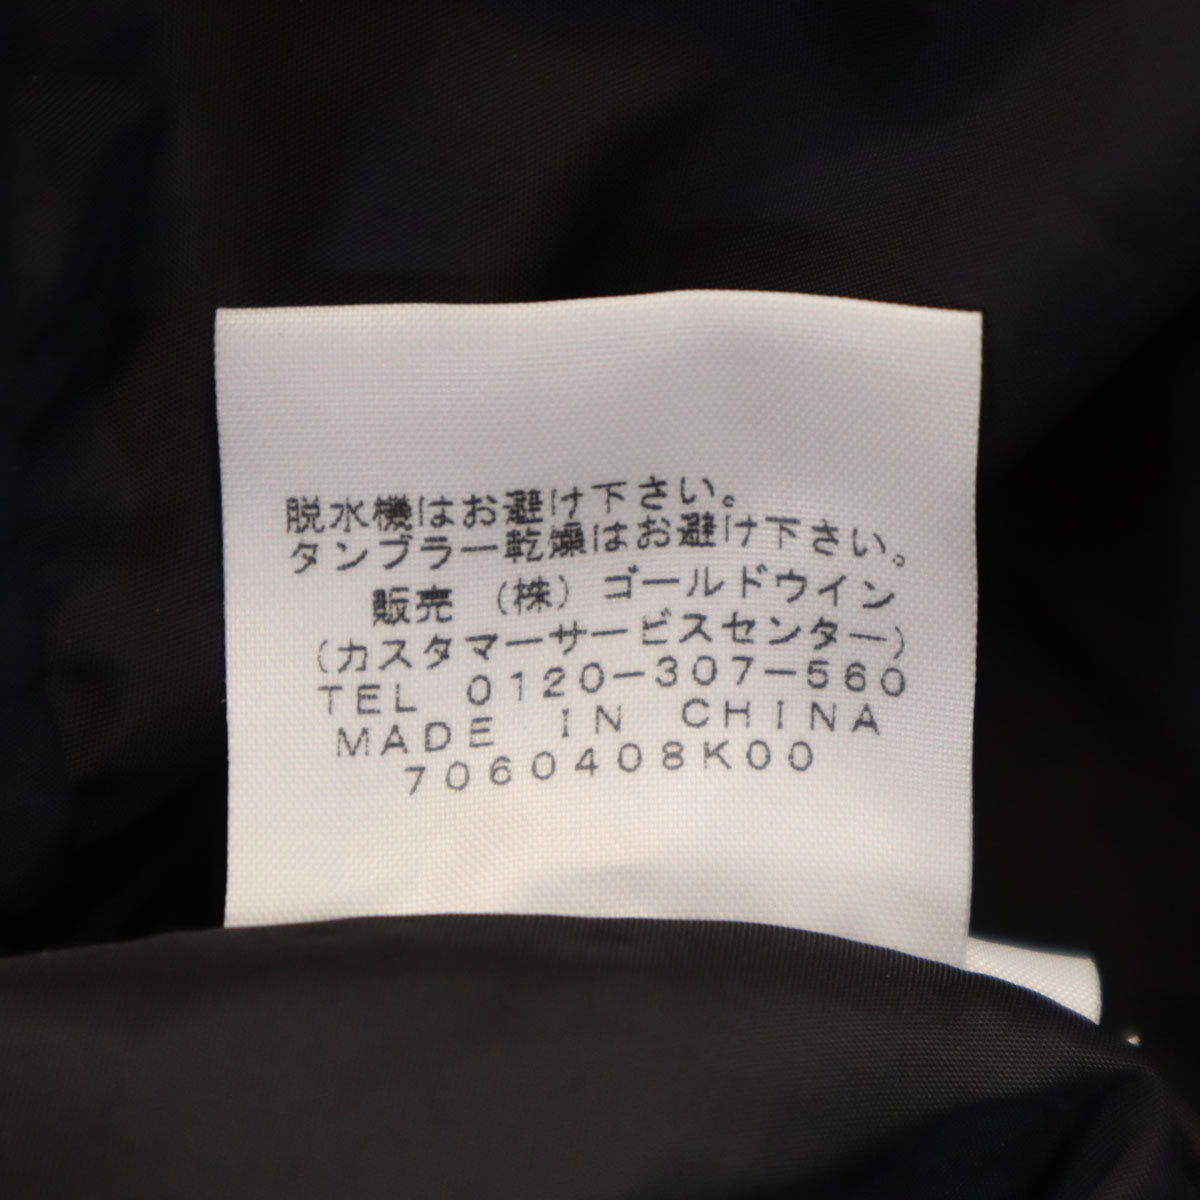 脱水機はお避け下さい。
タンブラー乾燥はお避け下さい。
販売 (株) ゴールドウイン
(カスタマーサービスセンター)
TEL 0120-307-560
MADE IN CHINA
7060408K00